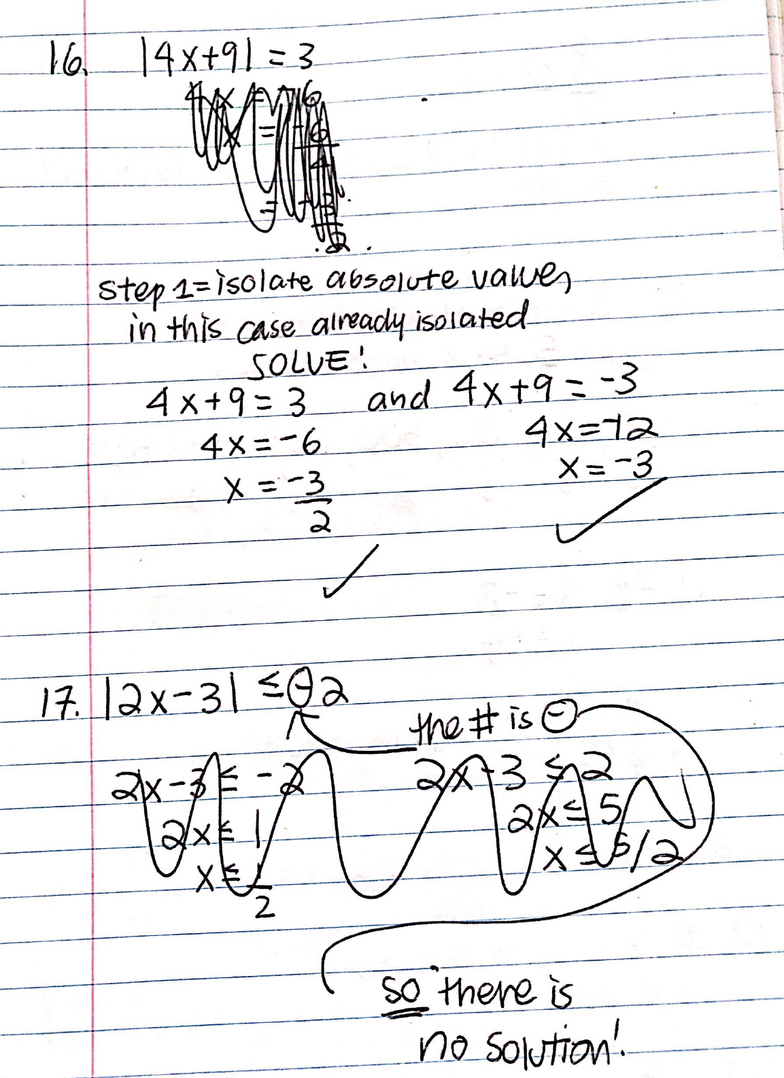 16. |4x+9| = 3
step 1 = isolate absolute value,
in this case already isolated
SOLVE!
4x+9 = 3 and 4x+9 = -3
4x = -6
4x = -12
x = -3/2
x = -3
17. |2x-3| ≤ -2
the # is -
2x-3 ≤ -2
2x-3 ≤ 2
2x ≤ 1
2x ≤ 5
x ≤ 1/2
x ≤ 5/2
so there is
no solution!